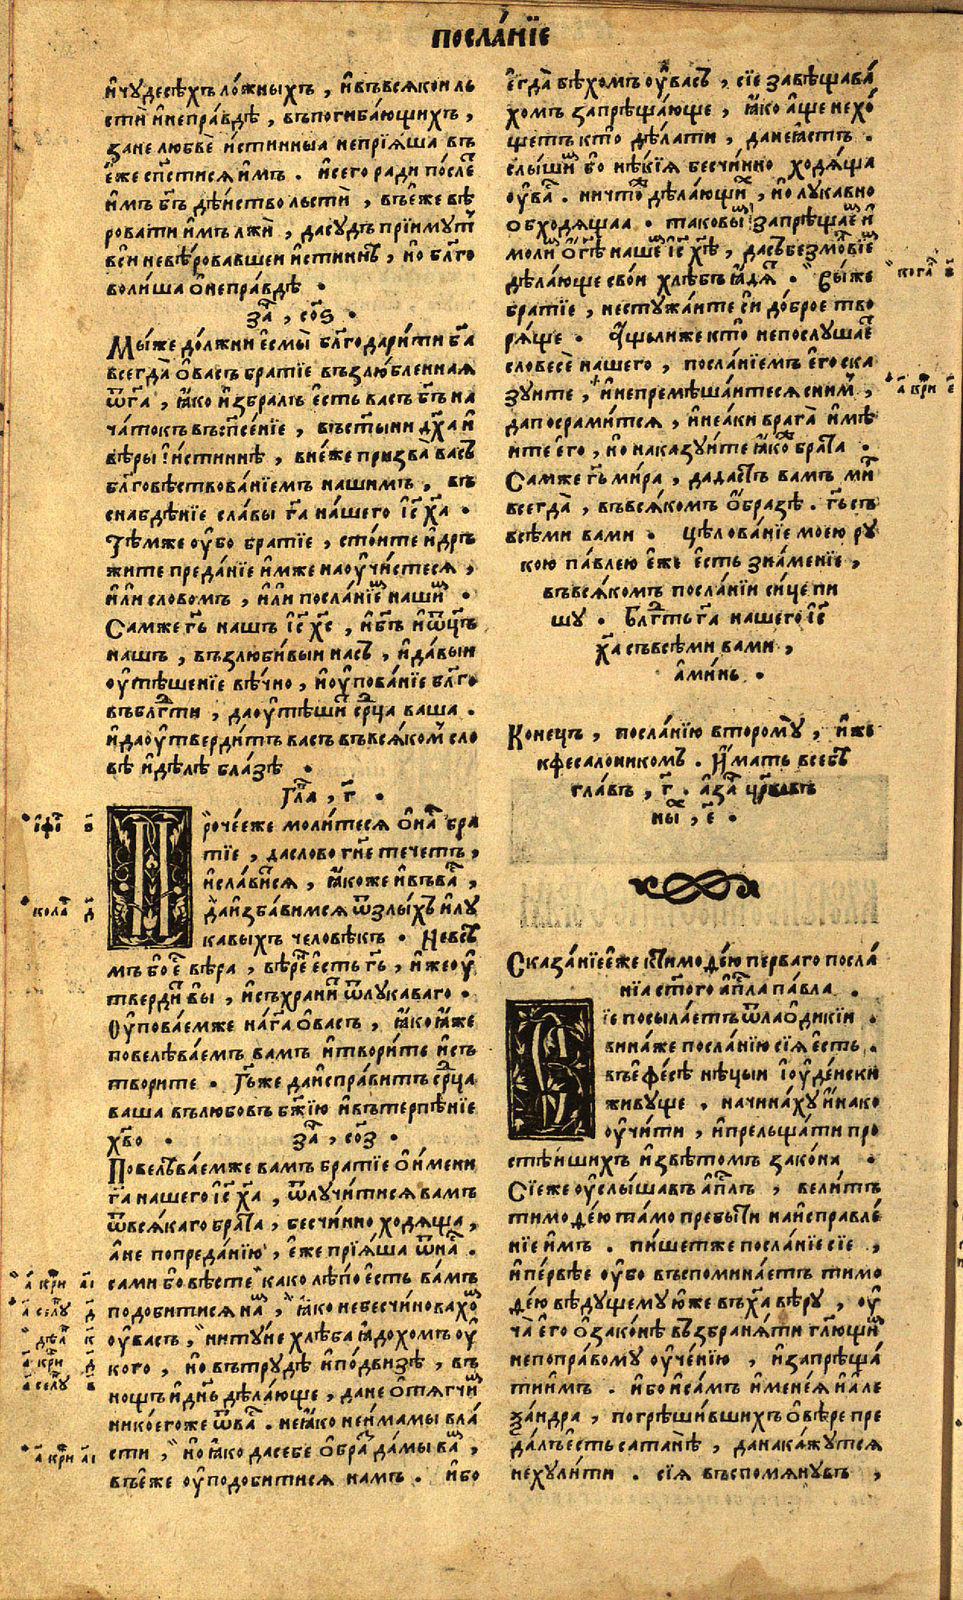 посла́нїе
и҆чудесѣ́хъ ло́жныхъ , и҆въвсѧкои ль
сти̏ и҆непра́вдѣ , въпогиба́ющихъ ,
зане любвѐ и҆стинныа непрїѧ́ша въ
є҆́же сп҃стисѧ и҆́мъ . и҆сего ради по́сле
и҆́мъ бг҃ъ дѣ́иство льстѝ , въє҆́же вѣ
ровати и҆́мъ лжѝ , дасу́дъ прїиму́т
вси неве́ровавшеи и҆́стиннѣ , но бл҃го
воли́ша ѻ҆непра́вдѣ .
за҃ , соѕ҃ .
Мы́же до́лжни є҆смы̀ бл҃годари́ти бг҃а
всегда̀ ѻ҆васъ бра́тїе възлю́бленнаа
ѿг҃а , ꙗ҆́ко и҆збралъ є҆́сть васъ бг҃ъ на
ча́токъ въсп҃се́нїе , въст҃ы́ни дх҃а и҆
вѣ́ры и҆́стиннѣ , вне́же призва̀ васъ
бл҃говѣствова́нїемъ нашимъ , въ
снабдѣ́нїе сла́вы г҃а на́шего і҆с҃ х҃а .
Тѣ́мже оу҆́бо братїе , сто́ите и҆дръ
жите преда́нїе и҆́мже наоучи́стесѧ ,
и҆́ли словомъ , и҆́ли посла́нїе на́ши .
Самже г҃ь нашъ і҆с҃ х҃с , и҆бг҃ъ и҆ѿц҃ъ
нашъ , възлюби́выи на́съ , и҆да́выи
оу҆тѣше́нїе вѣ́чно , и҆оу҆пова́нїе бл҃го
въблг҃ти , даоу҆тѣ́ши срⷣца ваша .
и҆даоу҆твердитъ васъ въвсѧ́ком сло
вѣ̀ и҆дѣлѣ бла́зѣ .
Гла҃ , г҃ .
Прочее́же моли́тесѧ ѻ҆на́ бра
тїе , даслово гн҃е тече́тъ ,
и҆сла́витсѧ , ꙗ҆́коже и҆въва́ ,
даи҆зба́вимсѧ ѿзлы́хъ и҆лу
кавыхъ человѣ́къ . Невсѣ
мъ бо є҆ вѣра , вѣ́ре є҆́сть г҃ь , и҆́же оу҆
тверди́ вы̀ , и҆съхрани́ ѿлука́ваго .
Оу҆пова́емже на́г҃а ѻ҆васъ , ꙗ҆́ко ꙗ҆́же
повелѣва́емъ вамъ и҆твори́те и҆съ
творите . Гь҃же даи҆спра́витъ срⷣца
ваша вълюбовъ бж҃їю и҆вътерпѣ́нїе
хв҃о . за҃ , соз҃ .
Повелѣва́емже вамъ бра́тїе ѻ҆и҆́мени
г҃а нашего і҆с҃ х҃а , ѿлучи́тисѧ вамъ
ѿвсѧ́каго бра́та , бесчи́нно ходѧ́ща ,
а҆́не попреда́нїю , є҆́же прїѧ́ша ѿна́ .
сами бо вѣ́сте како лѣ́по є҆́сть ва́мъ
подо́битисѧ на́ , ꙗ҆́ко небесчи́новахо
оу҆васъ , нитуне хлѣ́ба ꙗ҆дохомъ оу҆
кого , но вътрудѣ̀ и҆по́двизѣ , въ
нощъ и҆днь дѣ́лающе , дане ѻ҆тѧгчи
никое́гоже ѿва́ . не ꙗ҆́ко неи҆́мамы вла́
сти , но ꙗ҆́ко дасебе ѻ҆́бра да́мы ва́ ,
въє҆́же оу҆подо́битисѧ намъ . и҆бо
є҆гда̀ бѣ́хомъ оу҆васъ , сїе завѣщава́
хомъ запрѣща́юще , ꙗ҆́ко а҆́ще нехо́
щетъ кто̀ дѣ́лати , дане ꙗ҆́стъ .
слы́ши бо нѣ́кїѧ бесчи́нно ходѧща
оу҆ва́ . ничто́ дѣ́лающи , но лукавно
обходѧщаа . таковы запрѣща́е и҆
моли ѻ҆г҃ѣ наше і҆с҃ х҃ѣ , дасъбезмо́вїе
дѣ́лающе свои хлѣ́бъ ꙗ҆дѧ́ . Вы́же
братїе , нестужа́ите си до́брое тво
рѧ́ще . А҆́щылиже кто̀ непослу́шае
словесѐ нашего , посла́нїемъ є҆го ска
зуите , и҆непремѣша́итесѧ сним ,
дапосрами́тсѧ , и҆неа́ки врага̀ и҆мѣ́
ите є҆го , но наказу́ите ꙗ҆́ко бра́та .
Самже г҃ь ми́ра , дада́стъ вамъ ми
всегда̀ , въвсѧ́комъ ѻ҆́бразѣ . г҃ь съ
всѣ́ми вами . цѣлова́нїе моею ру
кою па́влею є҆́же є҆́сть зна́менїе ,
въвсѧкомъ посла́нїи си́це пи
шу . Блг҃ть г҃а нашего і҆с҃
х҃а съвсѣ́ми ва́ми ,
а҆ми́нь .
Коне́цъ , посла́нїю второ́му , и҆́же
кфесало́никомъ . И҆́мать всебѣ̀
гла́въ , г҃ . а҆за҃ црⷪ҇ковъ
ны , є҃ .
Сказа́нїе є҆́же ктимоѳе́ю перваго посла́
нїа ст҃о́го а҆п҃ла па́вла .
Сїе посыла́етъ ѿлаоди́кїи .
вина́же посла́нїю сїѧ̀ є҆́сть .
въє҆фе́сѣ нѣ́цыи і҆оуде́иски
живу́ще , начина́ху и҆́нако
оу҆чи́ти , и҆прельща́ти про
стѣ́ишихъ и҆звѣтомъ зако́на .
Сїе́же оу҆слы́шавъ а҆п҃лъ , вели́тъ
тимоѳе́ю та́мо пребы́ти наи҆справле́
нїе и҆́мъ . пи́шетже посла́нїе сїе ,
и҆пе́рвѣе оу҆́бо въспомина́етъ тимо
ѳе́ю вѣ́дущему ю҆́же въх҃а вѣ́ру , оу҆
ча̀ є҆го ѻ҆зако́нѣ възбранѧ́ти гл҃ющи
непопра́вому оу҆че́нїю , и҆запрѣща́
тиимъ . и҆бо и҆са́мъ и҆мене́ѧ и҆але
ѯа́ндра , погрѣши́вшихъ ѻ҆вѣре пре
да́лъ є҆́сть сатанѣ̀ , данака́жутсѧ
нехули́ти . сїѧ въспомѧну́въ ,
і҆фі҃ ѕ҃
кола҃ д҃
а҃ кри аі҃
а҃ селу д҃
дѣа҃ к҃
а҃ кри д҃
а҃ селу в҃
а҃ кри аі҃
кога҃ ѕ҃
а҃ кри є҃